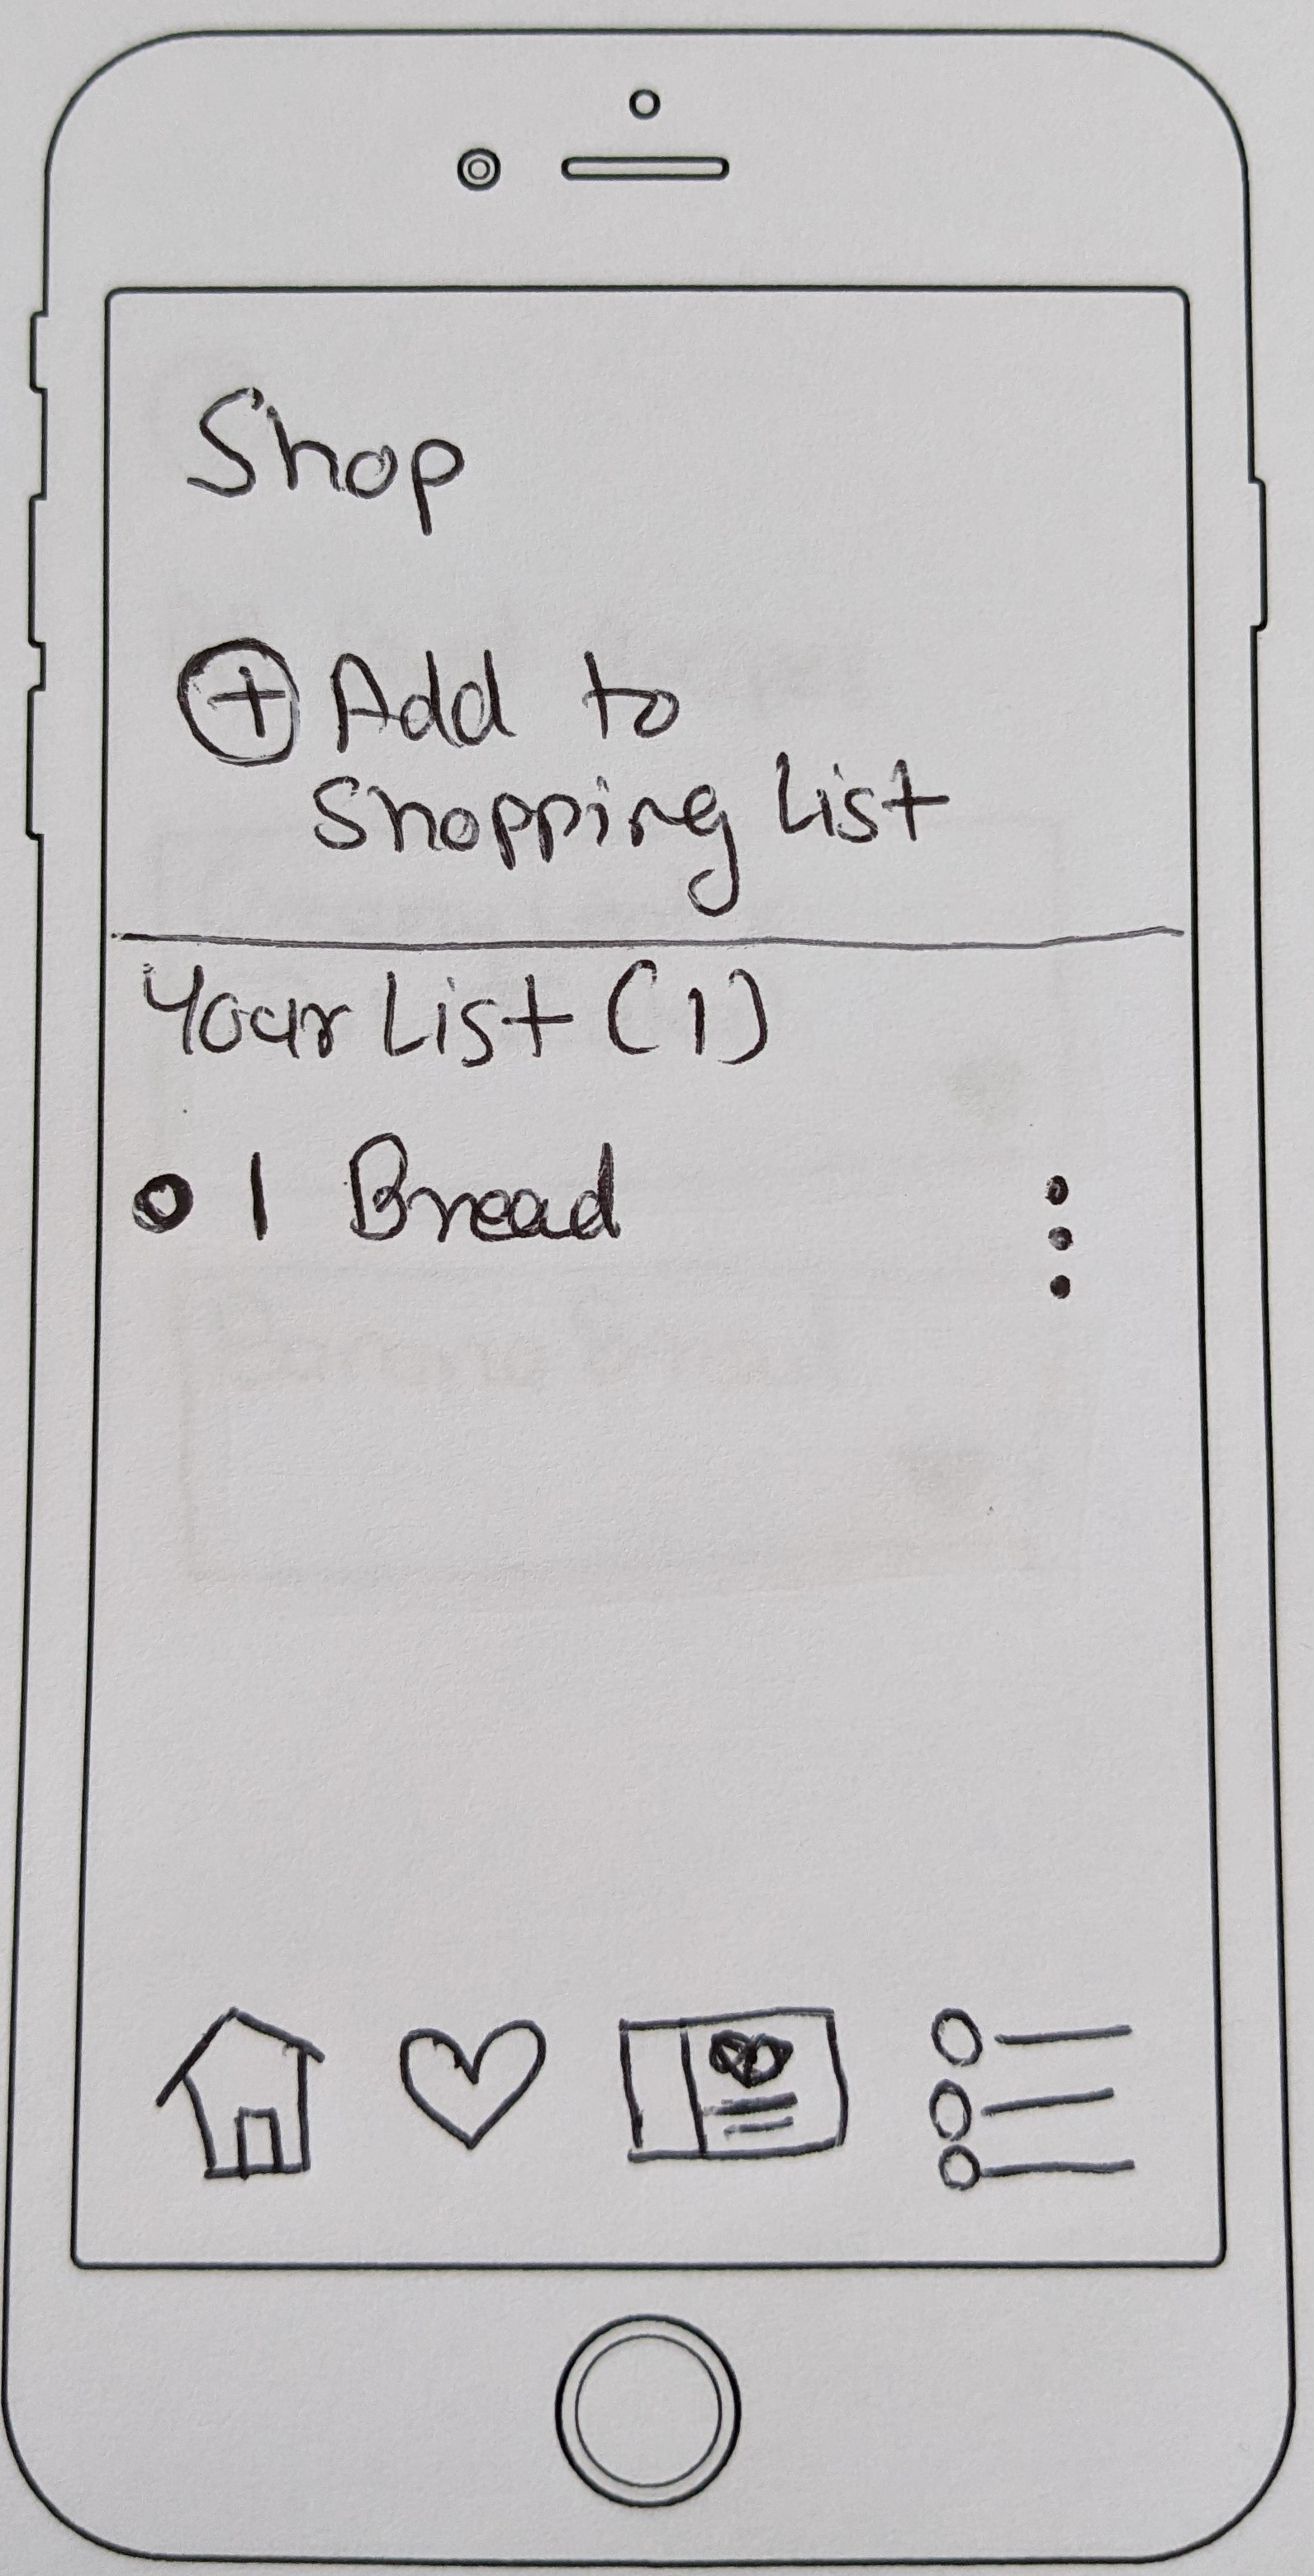 Shop
+ Add to
Shopping List
Your List (1)
1 Bread